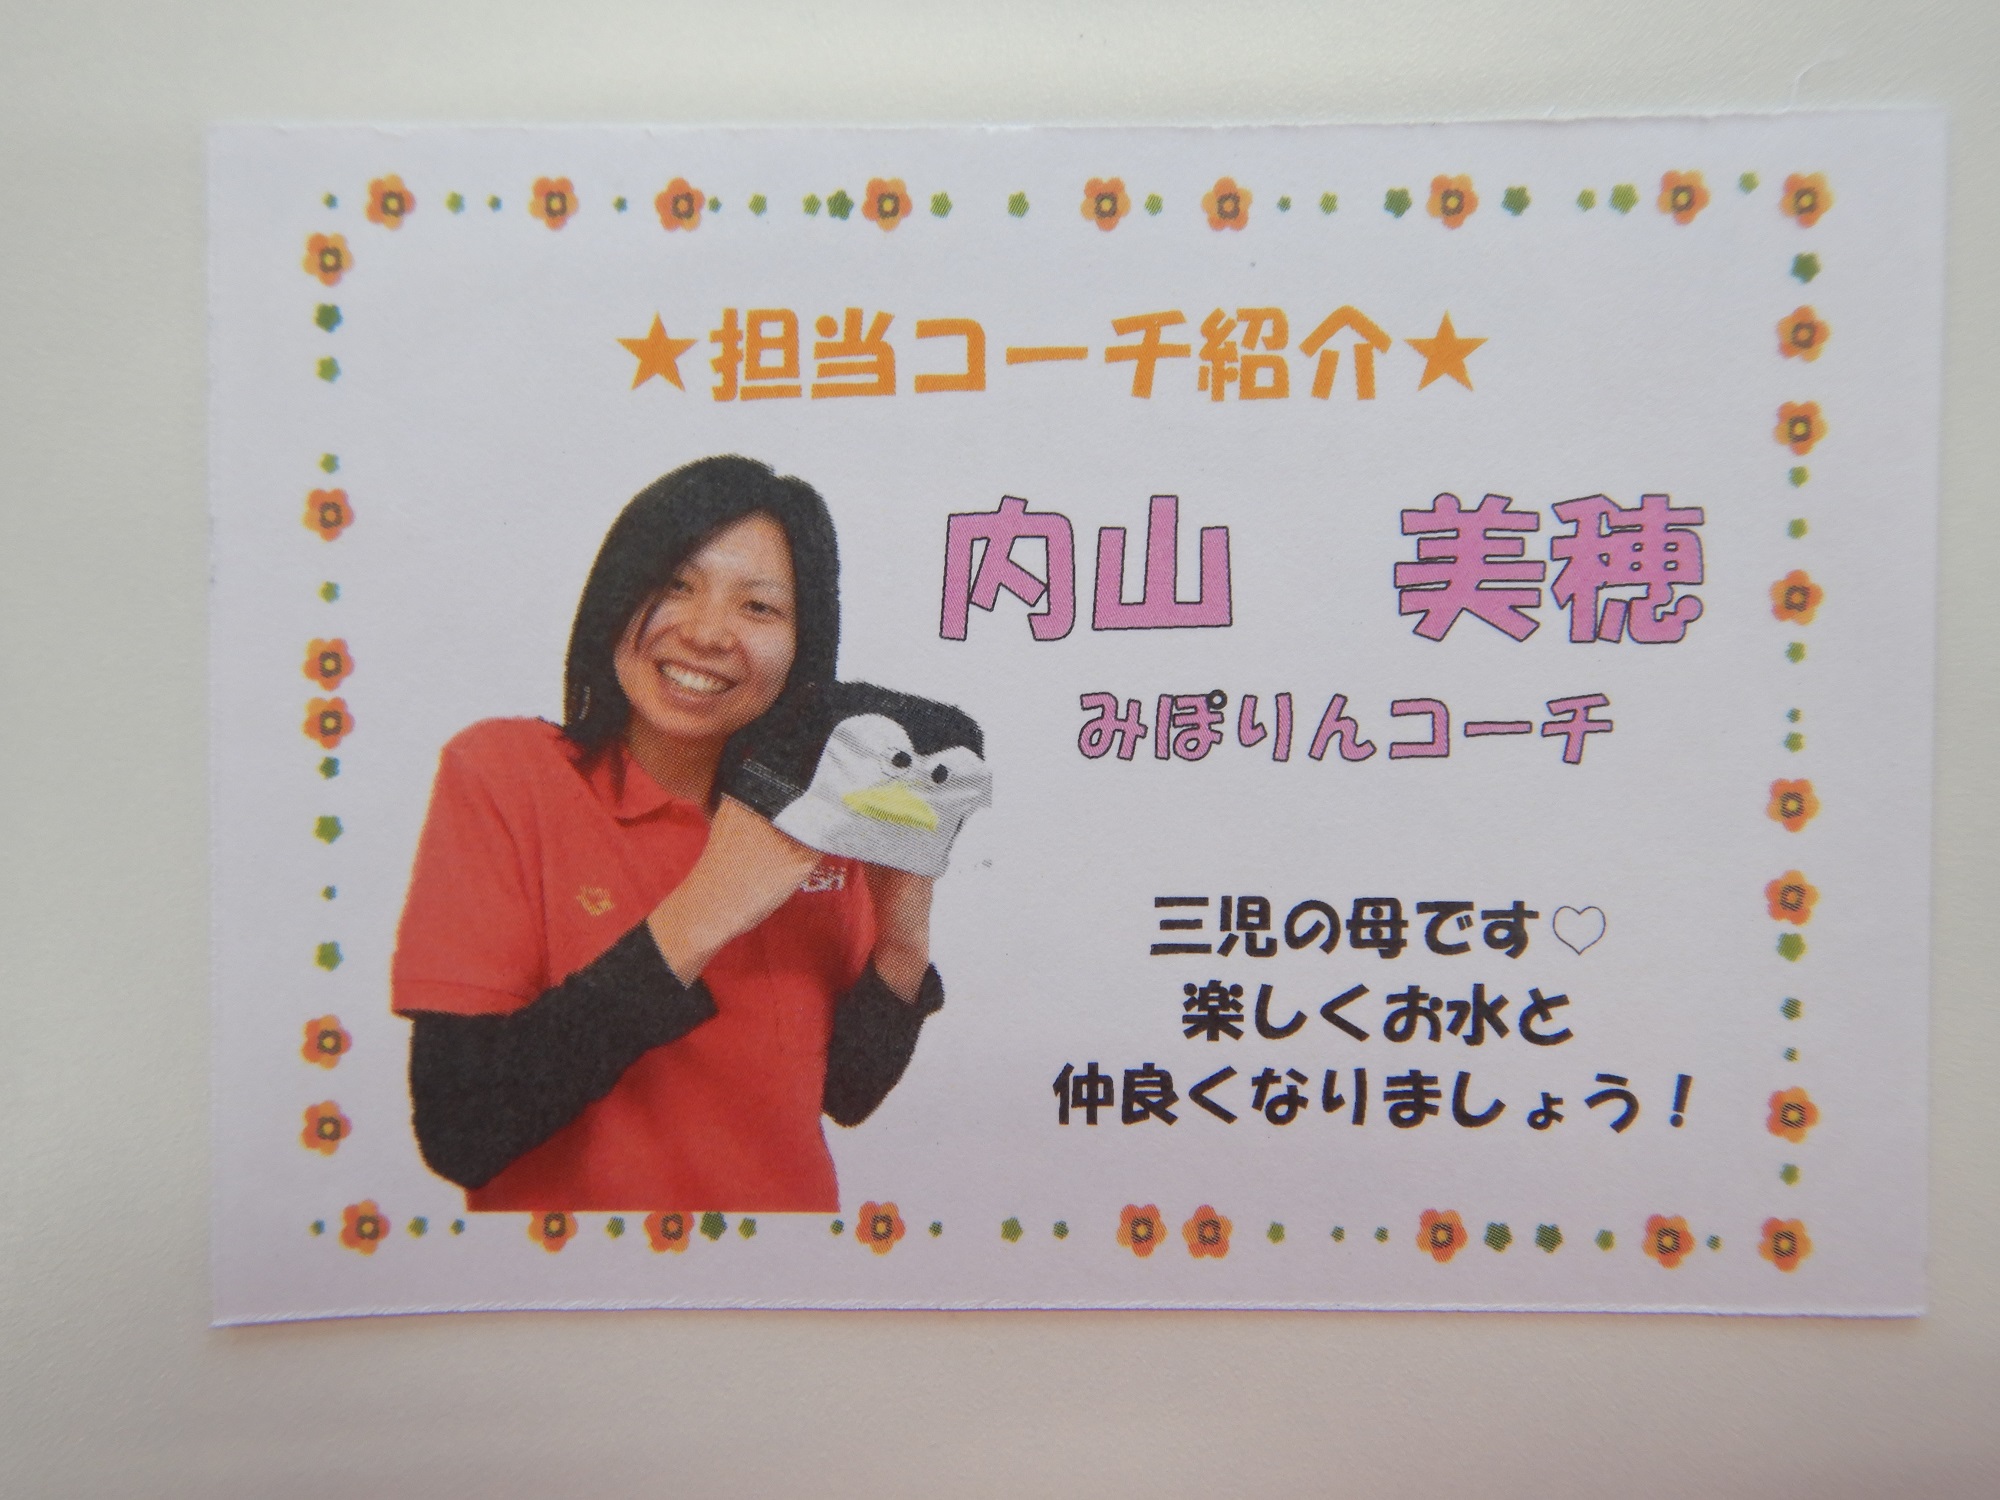 ★担当コーチ紹介★
内山　美穂
みぽりんコーチ
三児の母です♡
楽しくお水と
仲良くなりましょう！